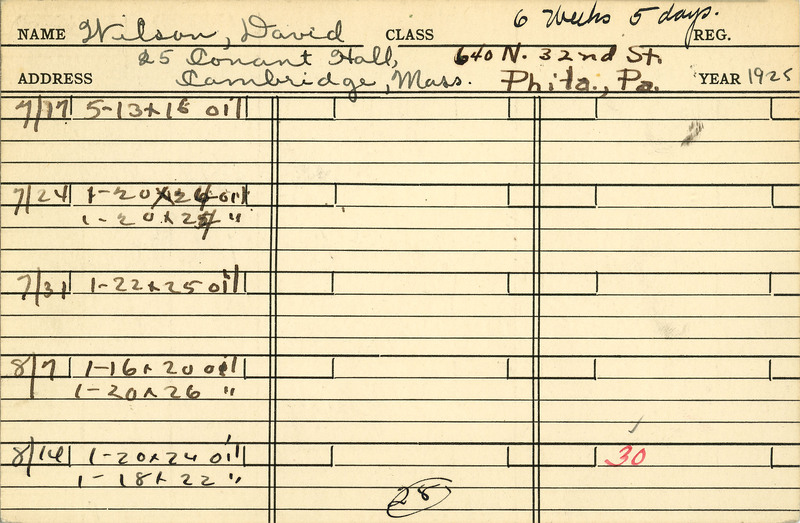 NAME Wilson, David CLASS 6 Weeks 5 days. REG.
25 Conant Hall, 640 N. 32nd St.
ADDRESS Cambridge, Mass. Phila., Pa. YEAR 1925
7/17 5-13x18 oil
7/24
1-20x25 "
7/31 1-22x25 oil
8/7 1-16x20 oil
1-20x26 "
8/14 1-20x24 oil 30
1-18x22 "
28